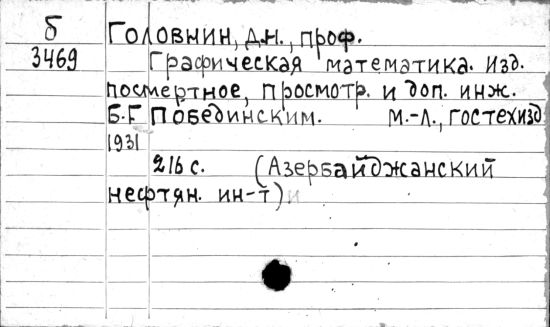 Б Головнин, Д.Н., проф.
3469 Графическая математика. Изд.
посмертное, просмотр. и доп. инж.
Б.Г Побединским. М.-Л., Гостехизд
1931
216 с. (Азербайджанский
нефтян. ин-т)